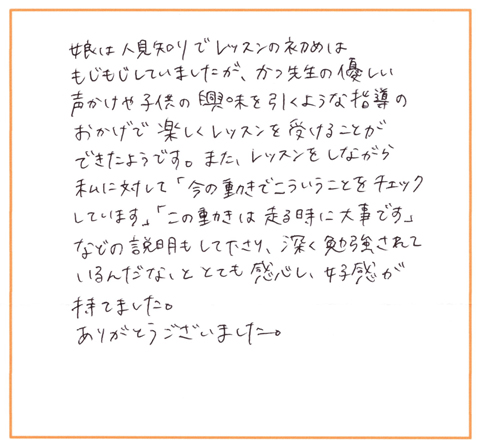 娘は人見知りでレッスンの初めは
もじもじしていましたが、かつ先生の優しい
声かけや子供の興味を引くような指導の
おかげで楽しくレッスンを受けることが
できたようです。また、レッスンをしながら
私に対して「今の動きでこういうことをチェック
しています」「この動きは走る時に大事です」
などの説明もして下さり、深く勉強されて
いるんだな、ととても感心し、好感が
持てました。
ありがとうございました。